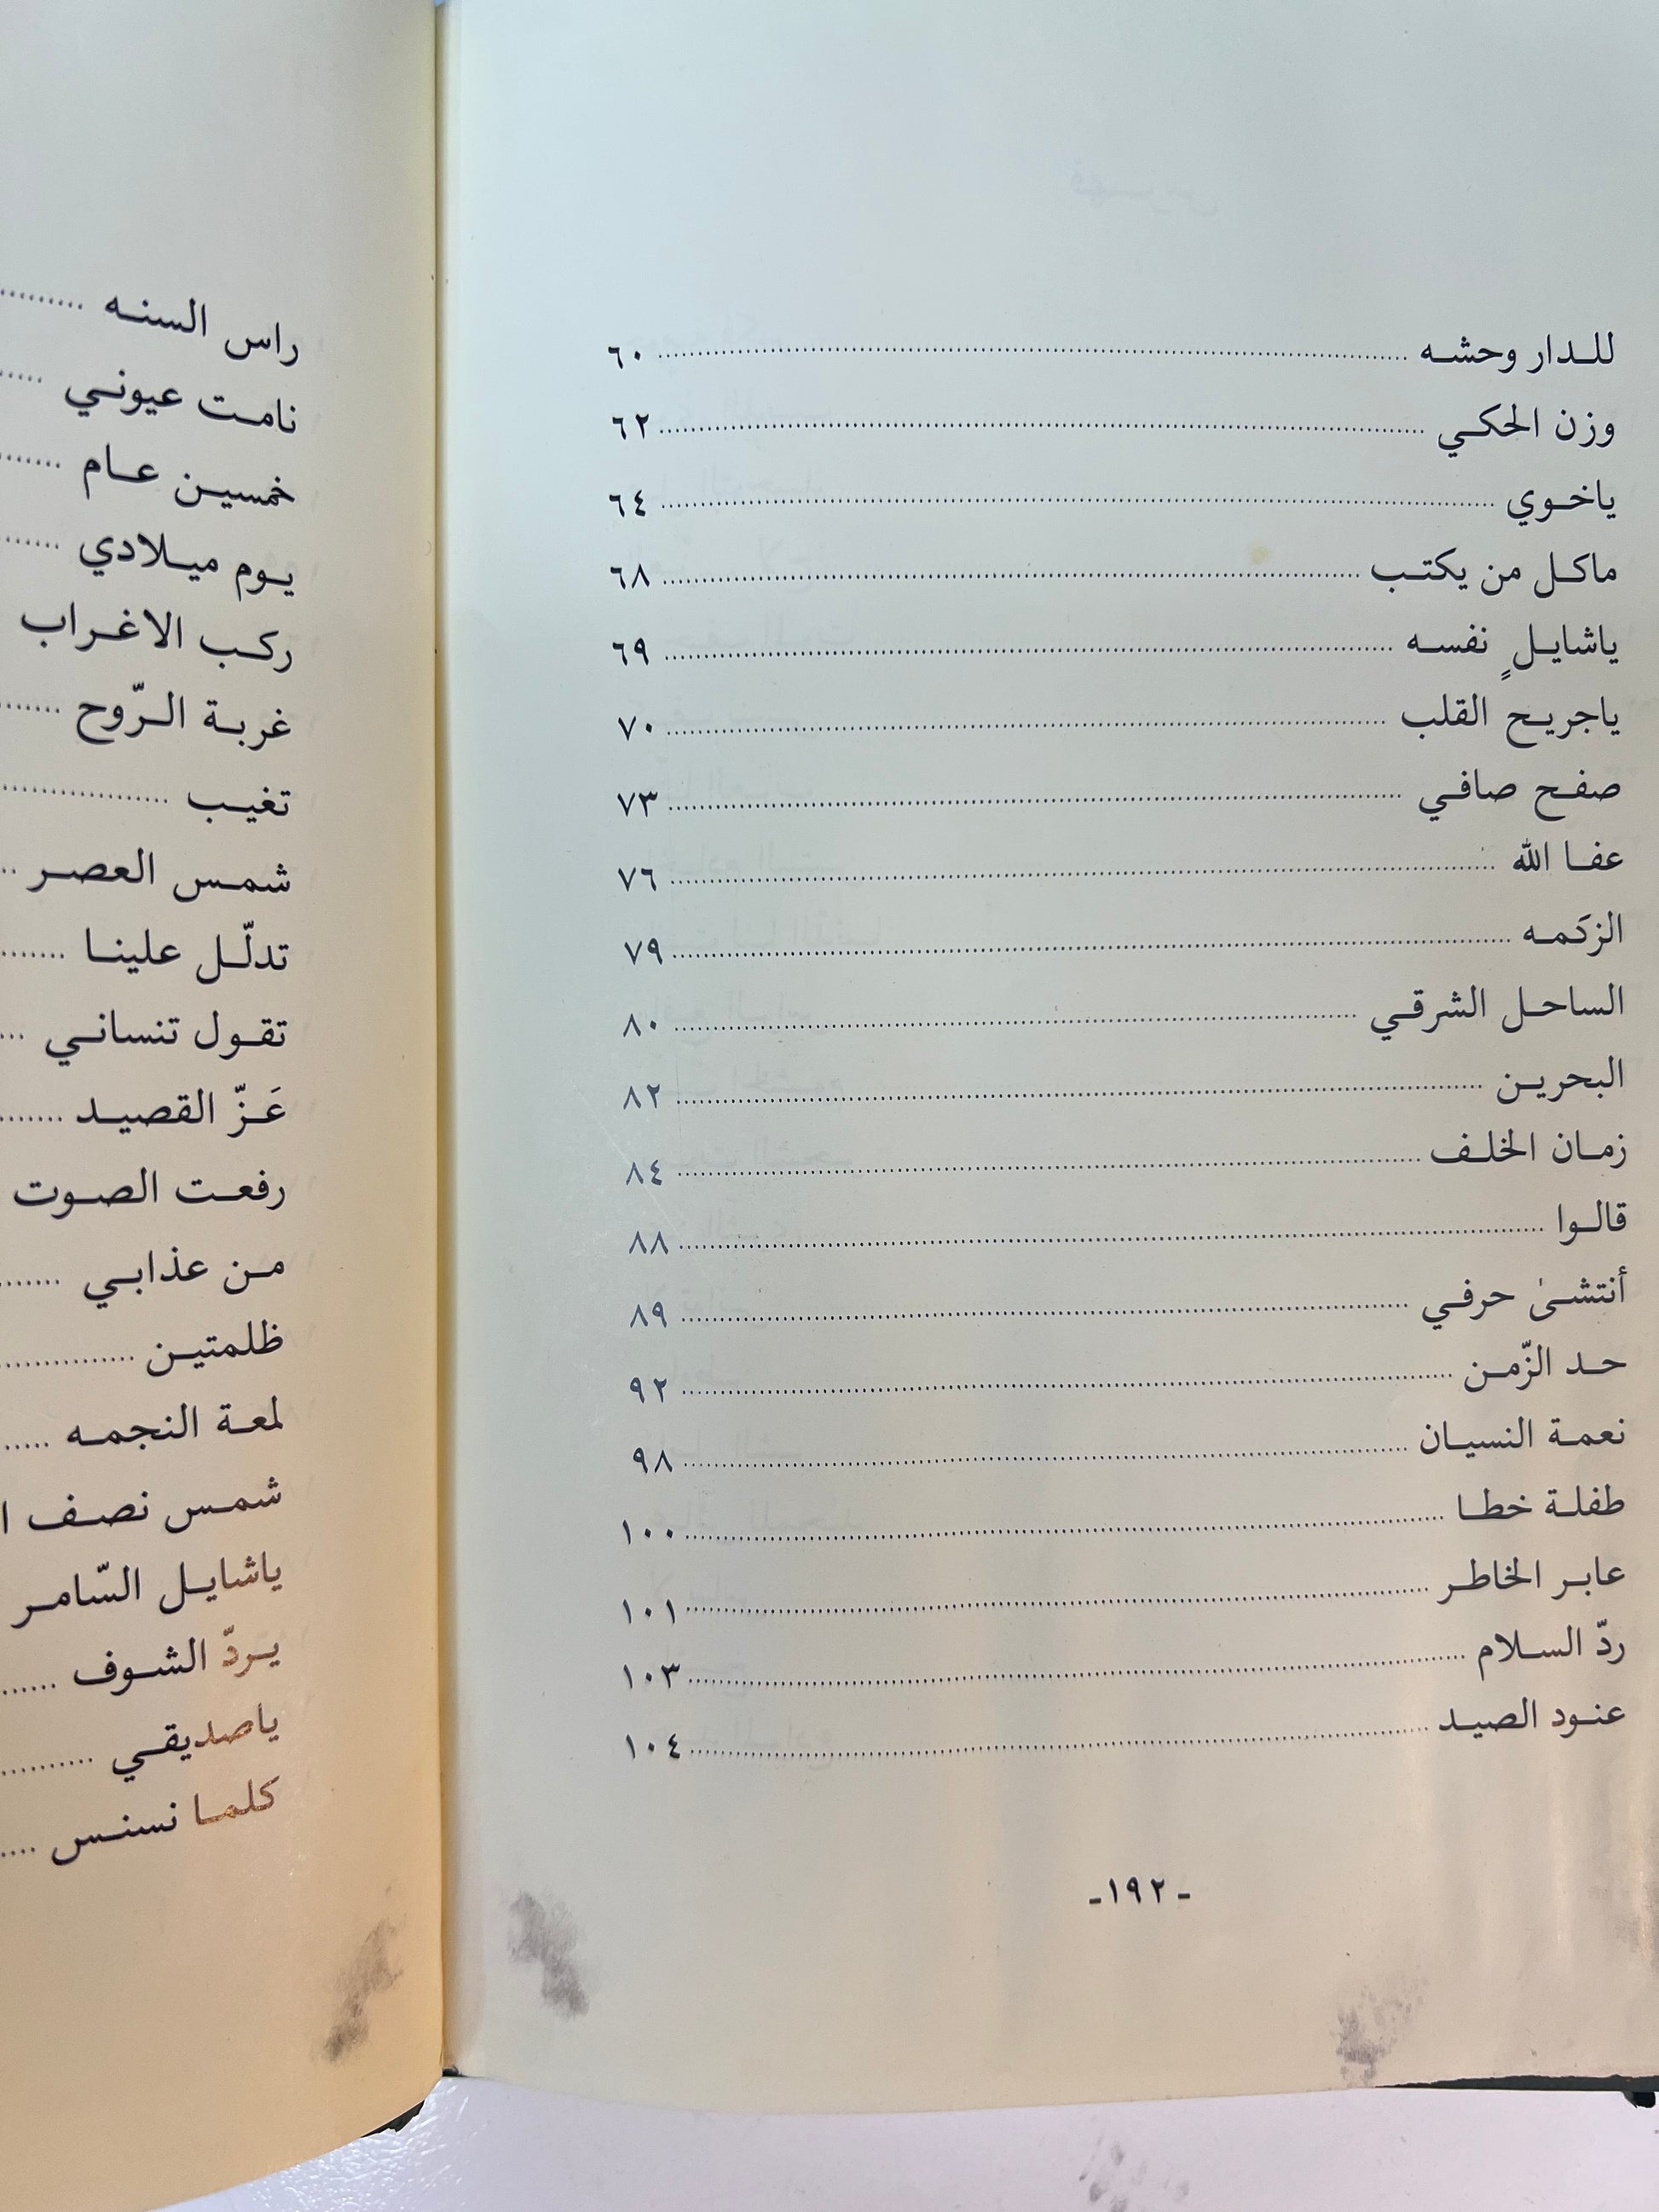 للـدار وحشـه ........ ٦٠
وزن الحكـي ........ ٦٢
ياخـوي ........ ٦٤
ماكـل من يكتـب ........ ٦٨
ياشايـلٍ نفسـه ........ ٦٩
ياجريـح القلب ........ ٧٠
صفـح صافـي ........ ٧٣
عفـا الله ........ ٧٦
الزحَمـه ........ ٧٩
الساحـل الشرقـي ........ ٨٠
البحريـن ........ ٨٢
زمـان الخلـف ........ ٨٤
قالـوا ........ ٨٨
أنتشـىٰ حرفـي ........ ٨٩
حـد الزّمـن ........ ٩٢
نعمـة النسيـان ........ ٩٨
طفلـة خطـا ........ ١٠٠
عابـر الخاطـر ........ ١٠١
ردّ السـلام ........ ١٠٣
عنـود الصيـد ........ ١٠٤
ـ ١٩٢ ـ
راس السنـه ........
نامـت عيونـي ........
خمسيـن عـام ........
يـوم ميـلادي ........
ركـب الاغـراب
غربـة الـرّوح ........
تغيـب ........
شمـس العصـر ..
تدلّـل علينـا ........
تقـول تنسانـي ...
عَـزّ القصيـد ........
رفعـت الصـوت
مـن عذابـي ........
ظلمتيـن ........
لمعـة النجمـه .....
شمـس نصـف
ياشايـل السّامـر
يـردّ الشـوف ......
ياصديقـي ........
كلمـا نسنـس ....